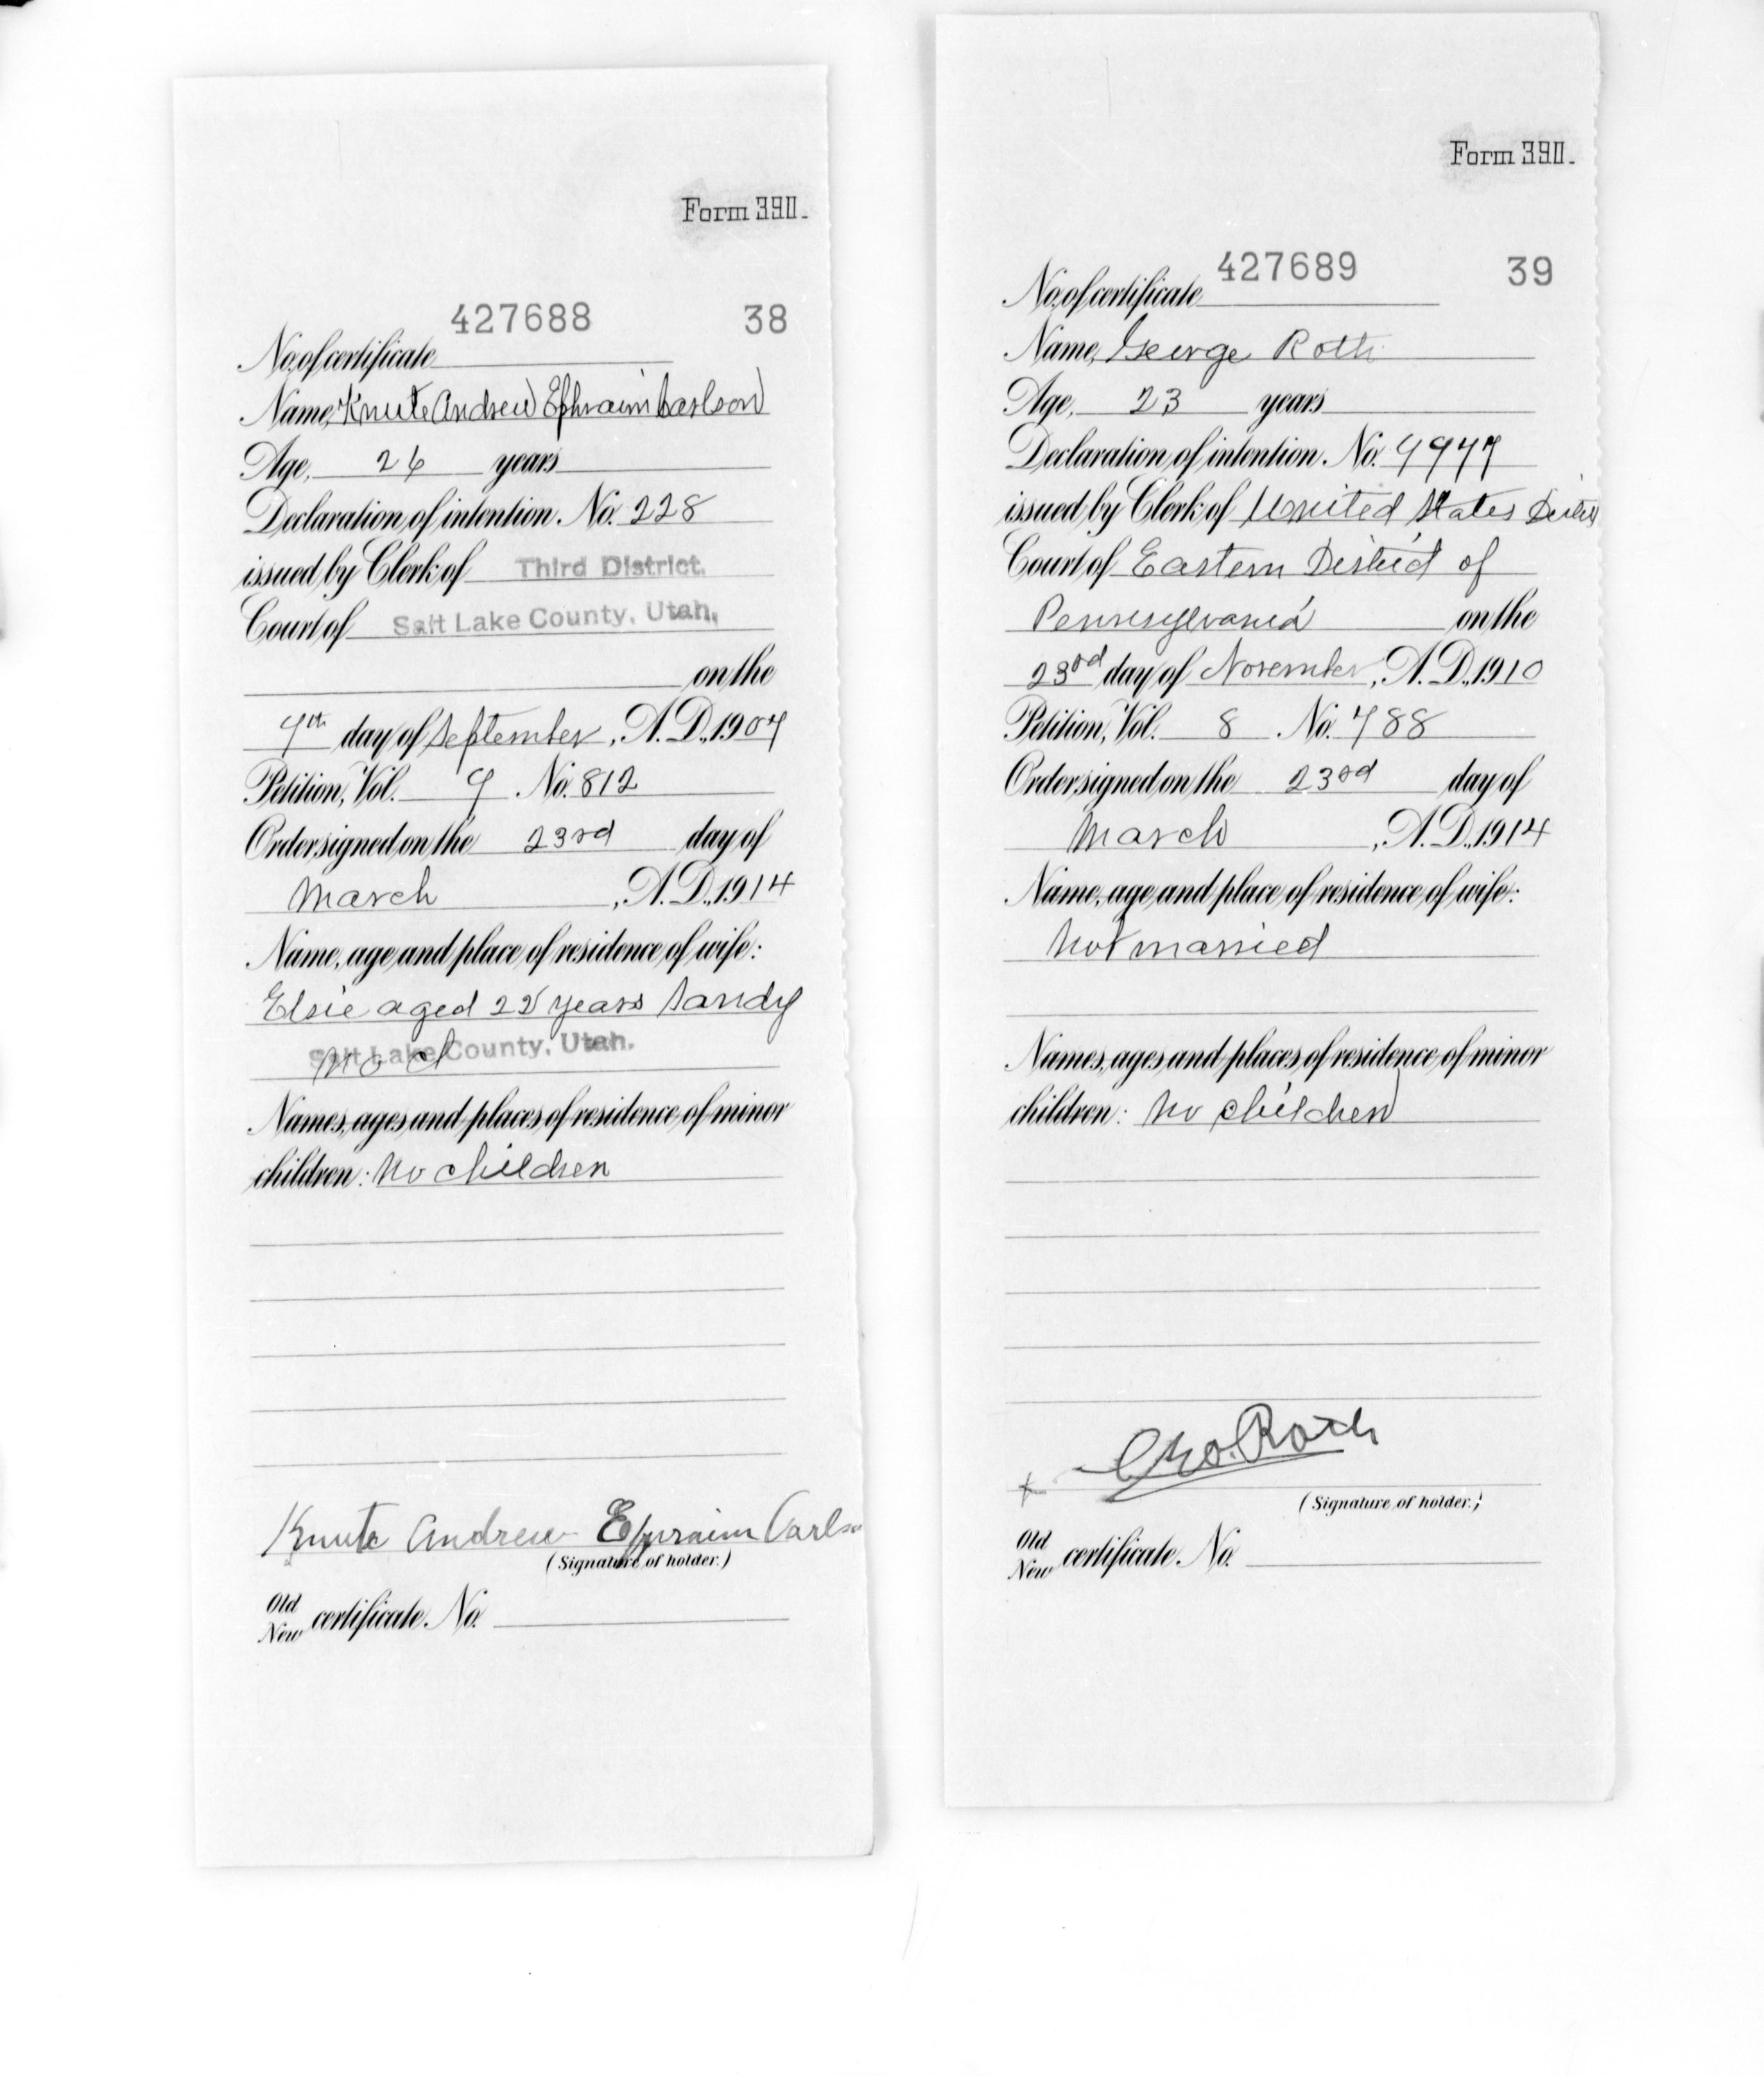 Form 390.
427688 38
No. of certificate
Name, Knute Andrew Ephraim Carlson
Age, 26 years
Declaration of intention. No. 228
issued by Clerk of Third District.
Court of Salt Lake County, Utah,
on the
day of September, A.D. 1907
Petition, Vol. 9 No. 812
Order signed on the 23rd day of
March, A.D. 1914
Name, age and place of residence of wife:
Elsie aged 22 years Sandy
Salt Lake County, Utah.
Names, ages and places of residence of minor
children: No children
Knute Andrew Ephraim Carls
(Signature of holder.)
Old
New certificate. No.
Form 390.
427689 39
No. of certificate
Name, George Roth
Age, 23 years
Declaration of intention. No.
issued by Clerk of United States
Court of Eastern District of
Pennsylvania on the
23rd day of November, A.D. 1910
Petition, Vol. 8 No. 788
Order signed on the 23rd day of
March, A.D. 1914
Name, age and place of residence of wife:
Not married
Names, ages and places of residence of minor
children: No children
x Geo. Roth
(Signature of holder.)
Old
New certificate. No.